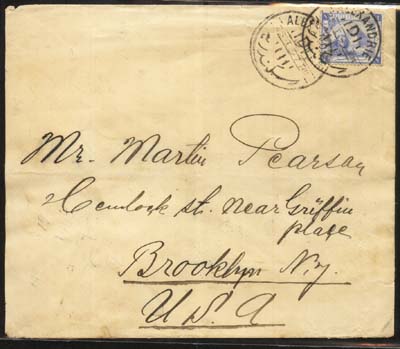 ALEXANDRIE
Mr. Martin Pearson
Hemlock st. near Griffin
place
Brooklyn N.Y.
U.S.A